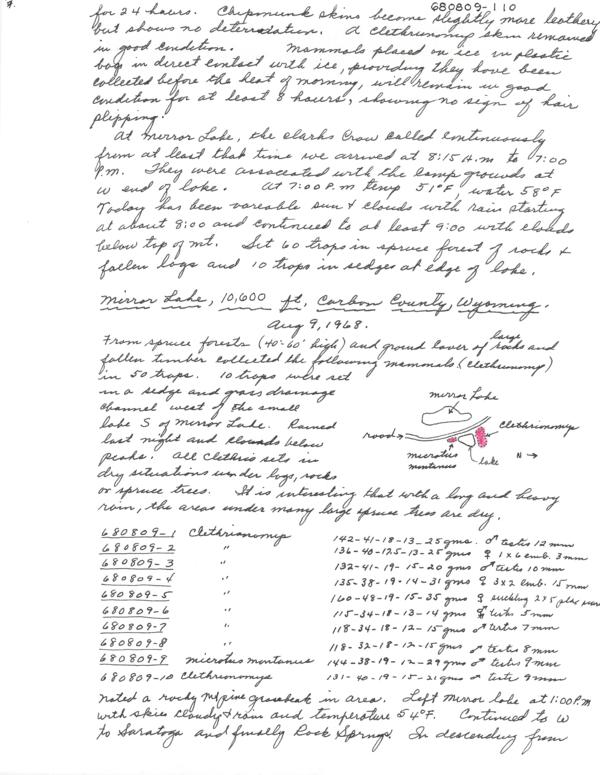 9.
680809-110
for 24 hours. Chipmunk skins become slightly more leathery
but shows no deterioration. A clethrionomys skin remained
in good condition. Mammals placed on ice in plastic
bag in direct contact with ice, providing they have been
collected before the heat of morning, will remain in good
condition for at least 8 hours, showing no sign of hair
slipping.
At Mirror Lake, the clarks Crow called continuously
from at least that time we arrived at 8:15 A.m to 7:00
P.m. They were associated with the camp grounds at
W end of lake. At 7:00 P.m temp 51°F, water 58°F
Today has been vareable sun & clouds with rain starting
at about 8:00 and continued to at least 9:00 with clouds
below top of mt. Set 60 traps in spruce forest of rocks &
fallen logs and 10 traps in sedges at edge of lake.
Mirror Lake, 10,600 ft, Carbon County, Wyoming.
Aug 9, 1968.
From spruce forests (40'-60' high) and ground cover of large rocks and
fallen timber collected the following mammals (clethrionomys)
in 50 traps. 10 traps were set
in a sedge and grass drainage
channel west of the small
lake S of Mirror Lake. Rained
last night and clouds below
peaks. All Clethrio sets in
dry situations under logs, rocks
or spruce trees. It is interesting that with a long and heavy
rain, the areas under many large spruce trees are dry.
mirror Lake
road
clethrionomys
microtus
montanus
lake
N →
680809-1 Clethrionomys 142-41-18-13-25gms. ♂ testis 12mm
680809-2 " 136-40-125-13-25 gms ♀ 1x6 emb. 3mm
680809-3 " 132-41-19-15-20 gms ♂ testes 10mm
680809-4 " 135-38-19-14-31 gms ♀ 3x2 emb. 15mm
680809-5 " 160-48-19-15-35 gms ♀ suckling 2x5 plac scars
680809-6 " 115-34-18-13-14 gms testis 5mm
680809-7 " 118-34-18-12-15 gms ♂ testis 7mm
680809-8 " 118-32-18-12-15 gms ♂ testis 8mm
680809-9 microtus montanus 144-38-19-12-29 gms ♂ testis 9mm
680809-10 Clethrionomys 131-40-19-15-21 gms ♂ teste 9mm
noted a rocky Mt pine grosbeak in area. Left Mirror lake at 1:00 P.m
with skies cloudy & rain and temperature 54°F. Continued to W
to Saratoga and finally Rock Springs. In descending from